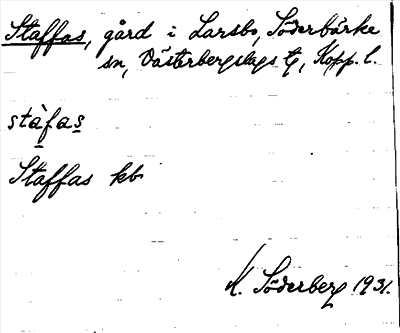 Staffas, gård i Larsbo, Söderbärke
sn, Västerbergslags tg, Kopp. l.
stàfas
Staffas kb
K. Söderberg 1931.